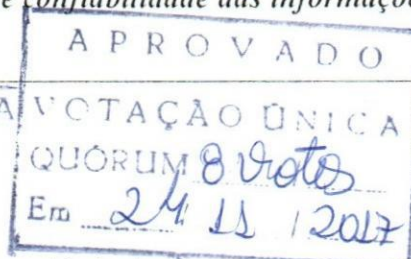 e confiabilidade das informaçõe
APROVADO
A VOTAÇÃO ÚNICA
QUÓRUM 8 Votos
Em 24 11 / 2017